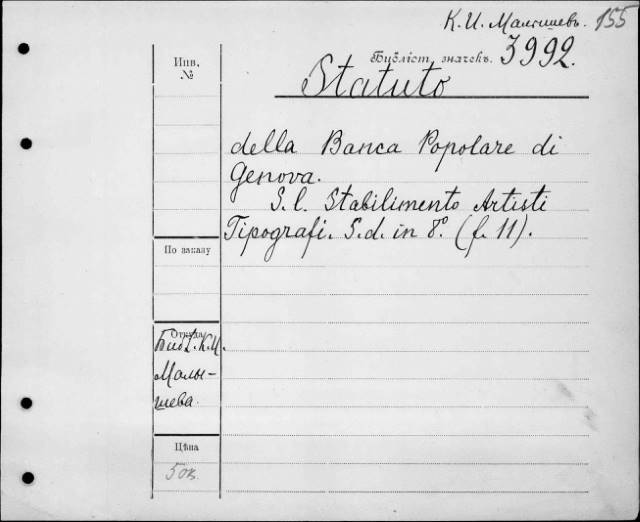 К. И. Малышевъ. 155
Библіот. значекъ. 3992.
Инв.
№
Statuto
della Banca Popolare di
Genova.
S. l. Stabilimento Artisti
Tipografi. S. d. in 8.º (f. 11).
По заказу
Откуда
Библ. К. И.
Малы-
шева.
Цѣна
50к.